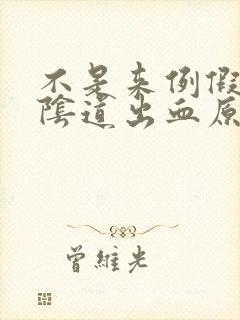 不是来例假
陰道出血原
曾維光